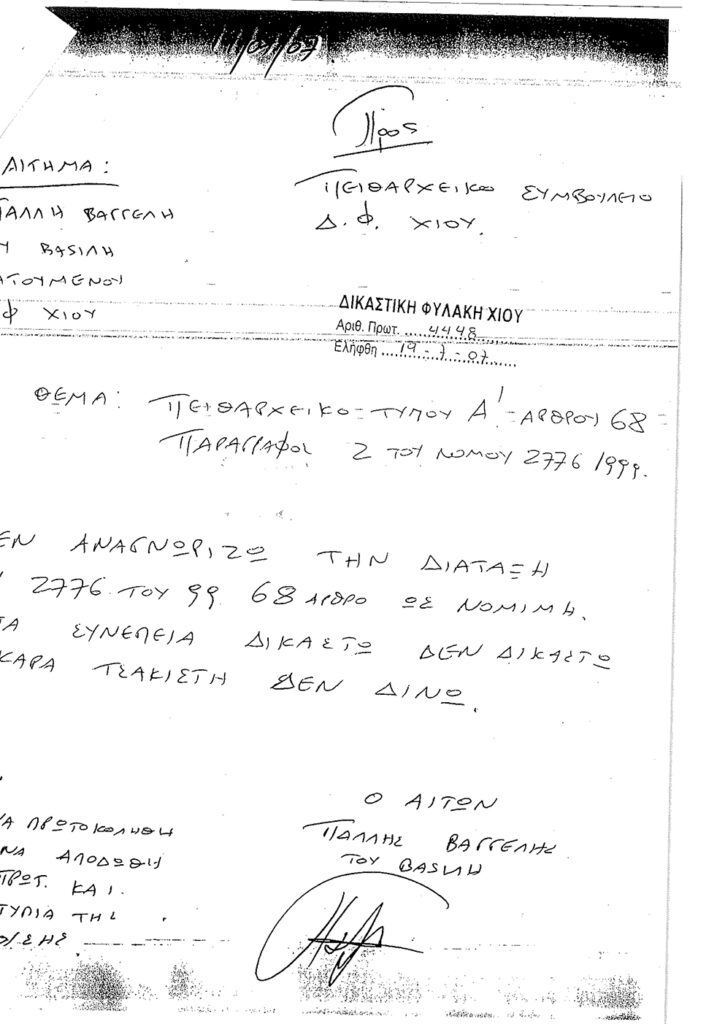 11/07/07
Προς
ΑΙΤΗΜΑ:
ΠΕΙΘΑΡΧΕΙΚΟ ΣΥΜΒΟΥΛΕΙΟ
ΠΑΛΛΗ ΒΑΓΓΕΛΗ
Δ.Φ. ΧΙΟΥ.
Υ ΒΑΣΙΛΗ
ΑΤΟΥΜΕΝΟΥ
Φ ΧΙΟΥ
ΔΙΚΑΣΤΙΚΗ ΦΥΛΑΚΗ ΧΙΟΥ
Αριθ. Πρωτ. ....4448......
Ελήφθη ...19-7-07......
ΘΕΜΑ: ΠΕΙΘΑΡΧΕΙΚΟ-ΤΥΠΟΥ Α'-ΑΡΘΡΟΥ 68-
ΠΑΡΑΓΡΑΦΟΙ 2 ΤΟΥ ΝΟΜΟΥ 2776/1999.
ΕΝ ΑΝΑΓΝΩΡΙΖΩ ΤΗΝ ΔΙΑΤΑΞΗ
2776 ΤΟΥ 99 68 ΑΡΘΡΟ ΩΣ ΝΟΜΙΜΗ.
ΤΑ ΣΥΝΕΠΕΙΑ ΔΙΚΑΣΤΩ ΔΕΝ ΔΙΚΑΣΤΩ
ΚΑΡΑ ΤΣΑΚΙΣΤΗ ΔΕΝ ΔΙΝΩ.
Ο ΑΙΤΩΝ
ΠΑΛΛΗΣ ΒΑΓΓΕΛΗΣ
ΤΟΥ ΒΑΣΙΛΗ
ΝΑ ΠΡΩΤΟΚΟΛΗΘΗ
ΝΑ ΑΠΟΔΩΘΗ
ΠΡΩΤ. ΚΑΙ.
ΤΥΠΙΑ ΤΗΣ
ΣΗΣ